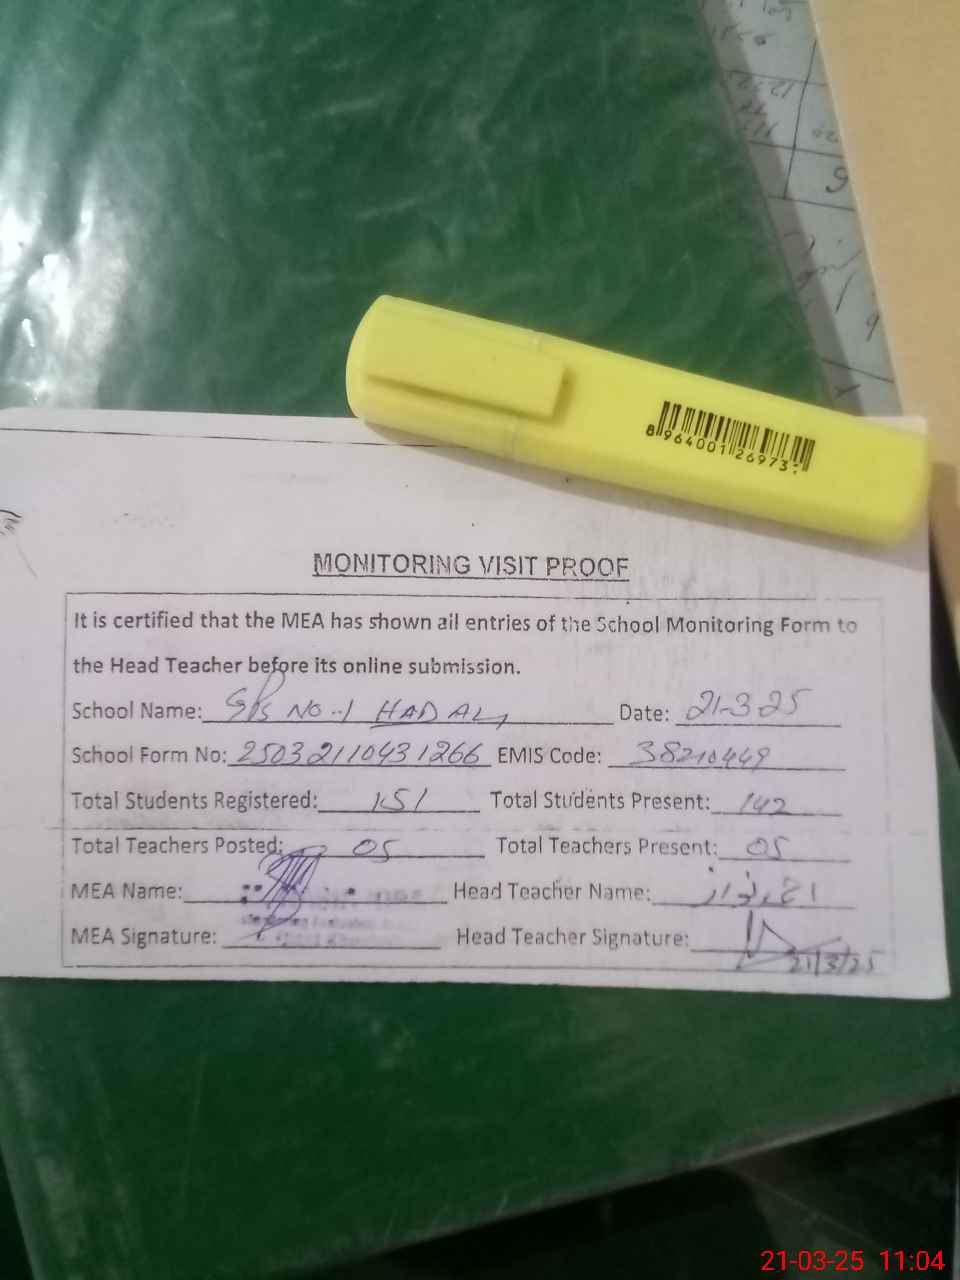 8964001269731
MONITORING VISIT PROOF
It is certified that the MEA has shown all entries of the School Monitoring Form to
the Head Teacher before its online submission.
School Name: GPS NO-1 HADALI Date: 21-3-25
School Form No: 25032110431266 EMIS Code: 38210449
Total Students Registered: 151 Total Students Present: 142
Total Teachers Posted: 05 Total Teachers Present: 05
MEA Name: Head Teacher Name:
MEA Signature: Head Teacher Signature:
21/3/25
21-03-25 11:04